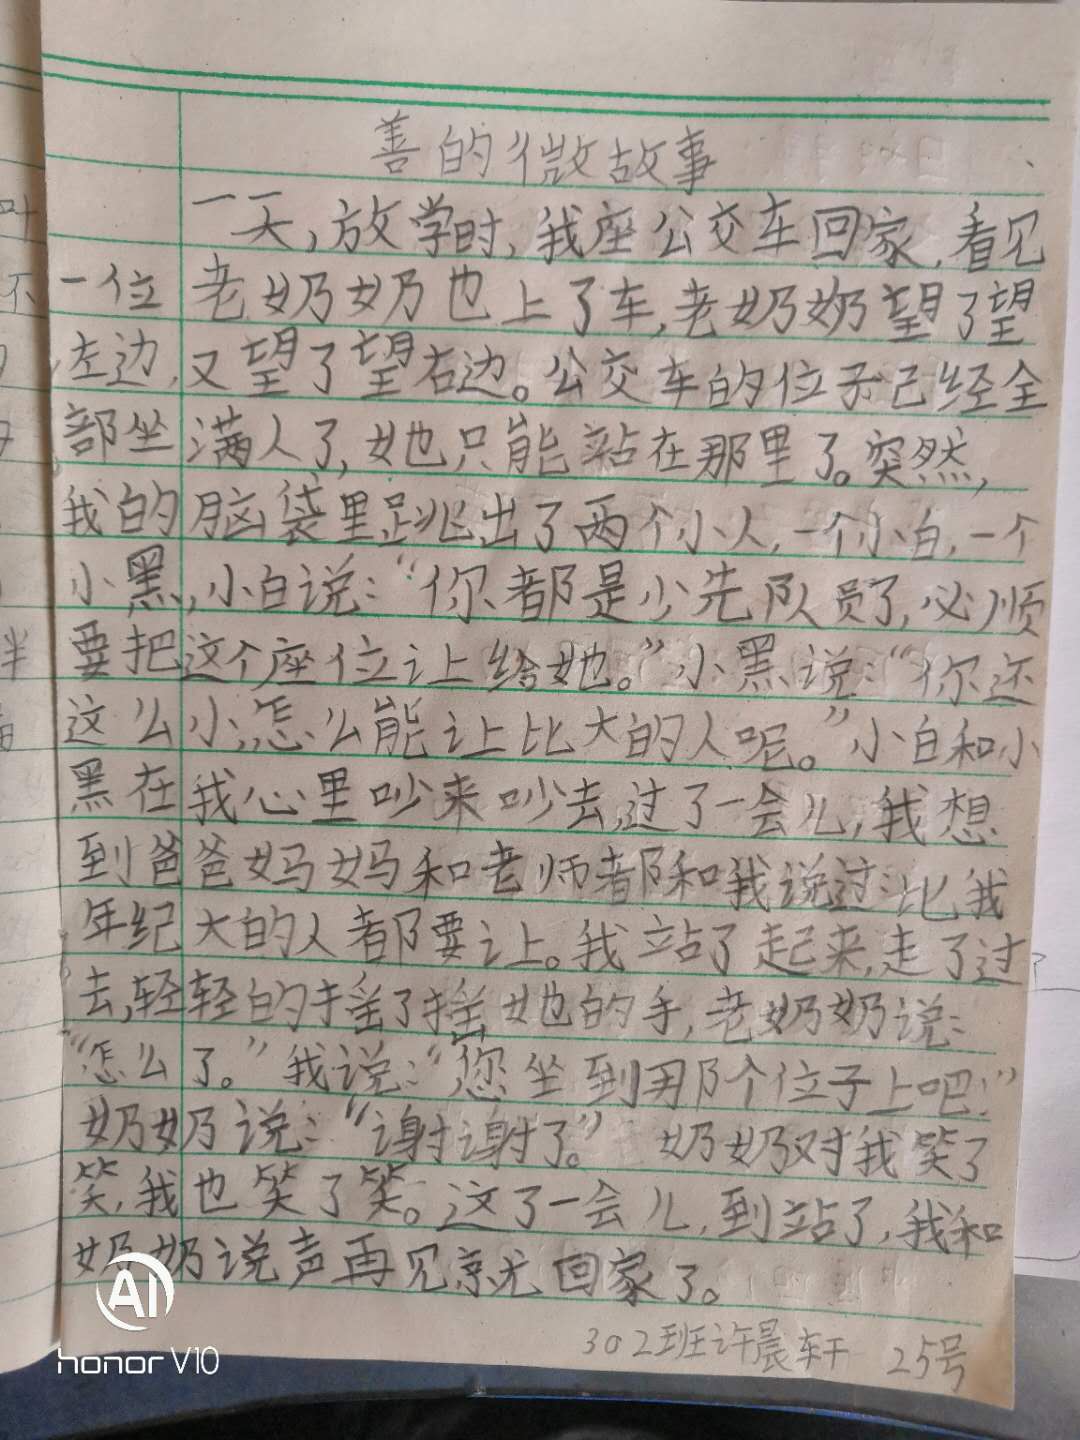 善的微故事
一天，放学时，我座公交车回家，看见
一位老奶奶也上了车，老奶奶望了望
左边，又望了望右边。公交车的位子已经全
部坐满人了，她只能站在那里了。突然，
我的脑袋里跳出了两个小人，一个小白，一个
小黑，小白说：“你都是少先队员了，必顺
要把这个座位让给她。”小黑说：“你还
这么小，怎么能让比大的人呢。”小白和小
黑在我心里吵来吵去，过了一会儿，我想
到爸爸妈妈和老师都和我说过：比我
年纪大的人都要让。我站了起来，走了过
去，轻轻的摇了摇她的手，老奶奶说：
“怎么了。”我说：“您坐到那个位子上吧！”
奶奶说：“谢谢了。”奶奶对我笑了
笑，我也笑了笑。这了一会儿，到站了，我和
奶奶说声再见就回家了。
302班许晨轩 25号
AI
honor V10